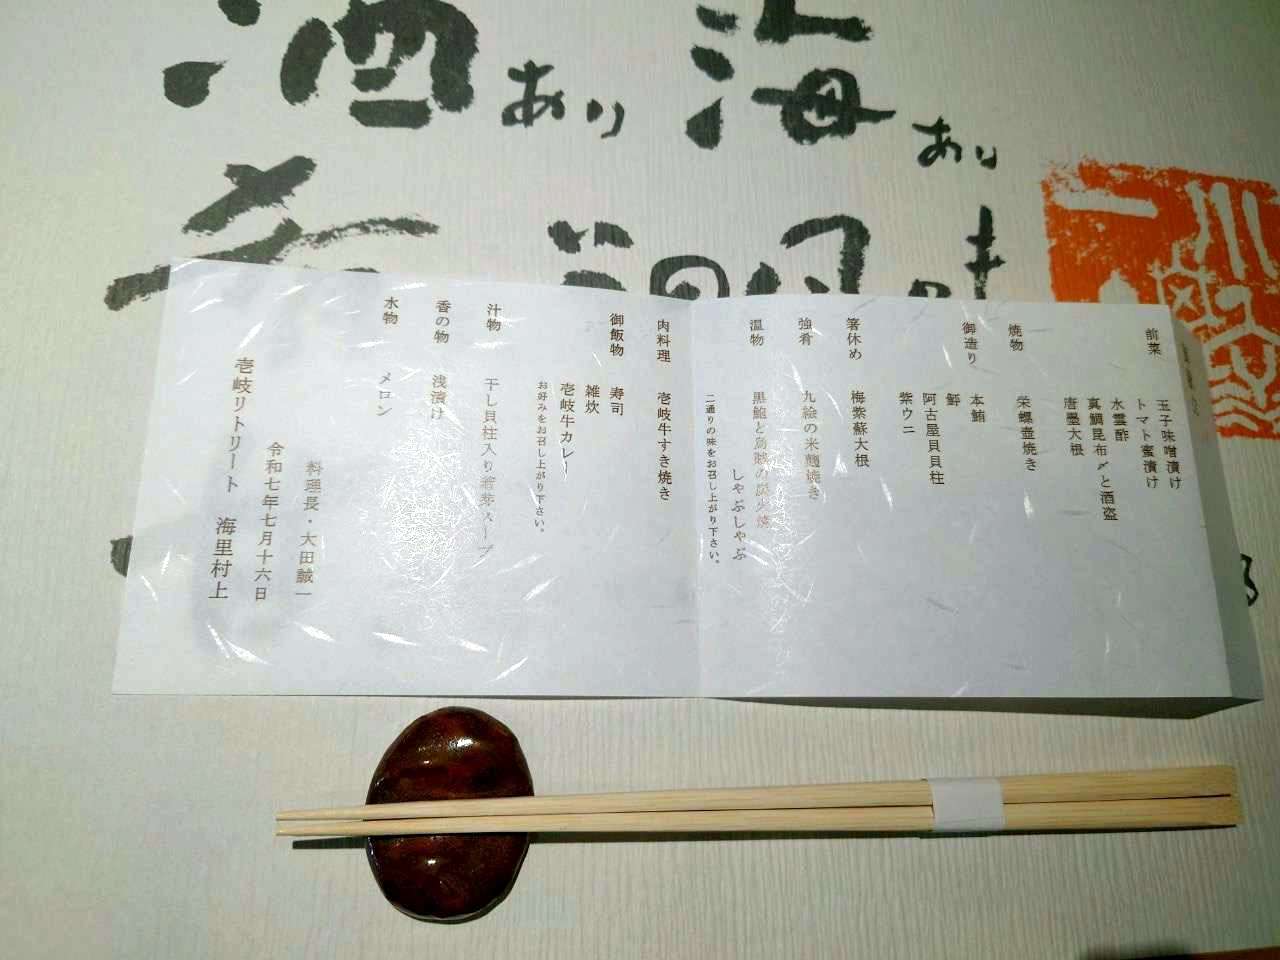 海あり
酒あり
前菜
玉子味噌漬け
トマト蜜漬け
水雲酢
真鯛昆布〆と酒盗
唐墨大根
焼物
栄螺壺焼き
御造り
本鮪
鮃
阿古屋貝貝柱
紫ウニ
箸休め
梅紫蘇大根
強肴
九絵の米麹焼き
温物
黒鮑と烏賊の炭火焼
しゃぶしゃぶ
二通りの味をお召し上がり下さい。
肉料理
壱岐牛すき焼き
御飯物
寿司
雑炊
壱岐牛カレー
お好みをお召し上がり下さい。
汁物
干し貝柱入り若芽スープ
香の物
浅漬け
水物
メロン
料理長・大田誠一
令和七年七月十六日
壱岐リトリート 海里村上